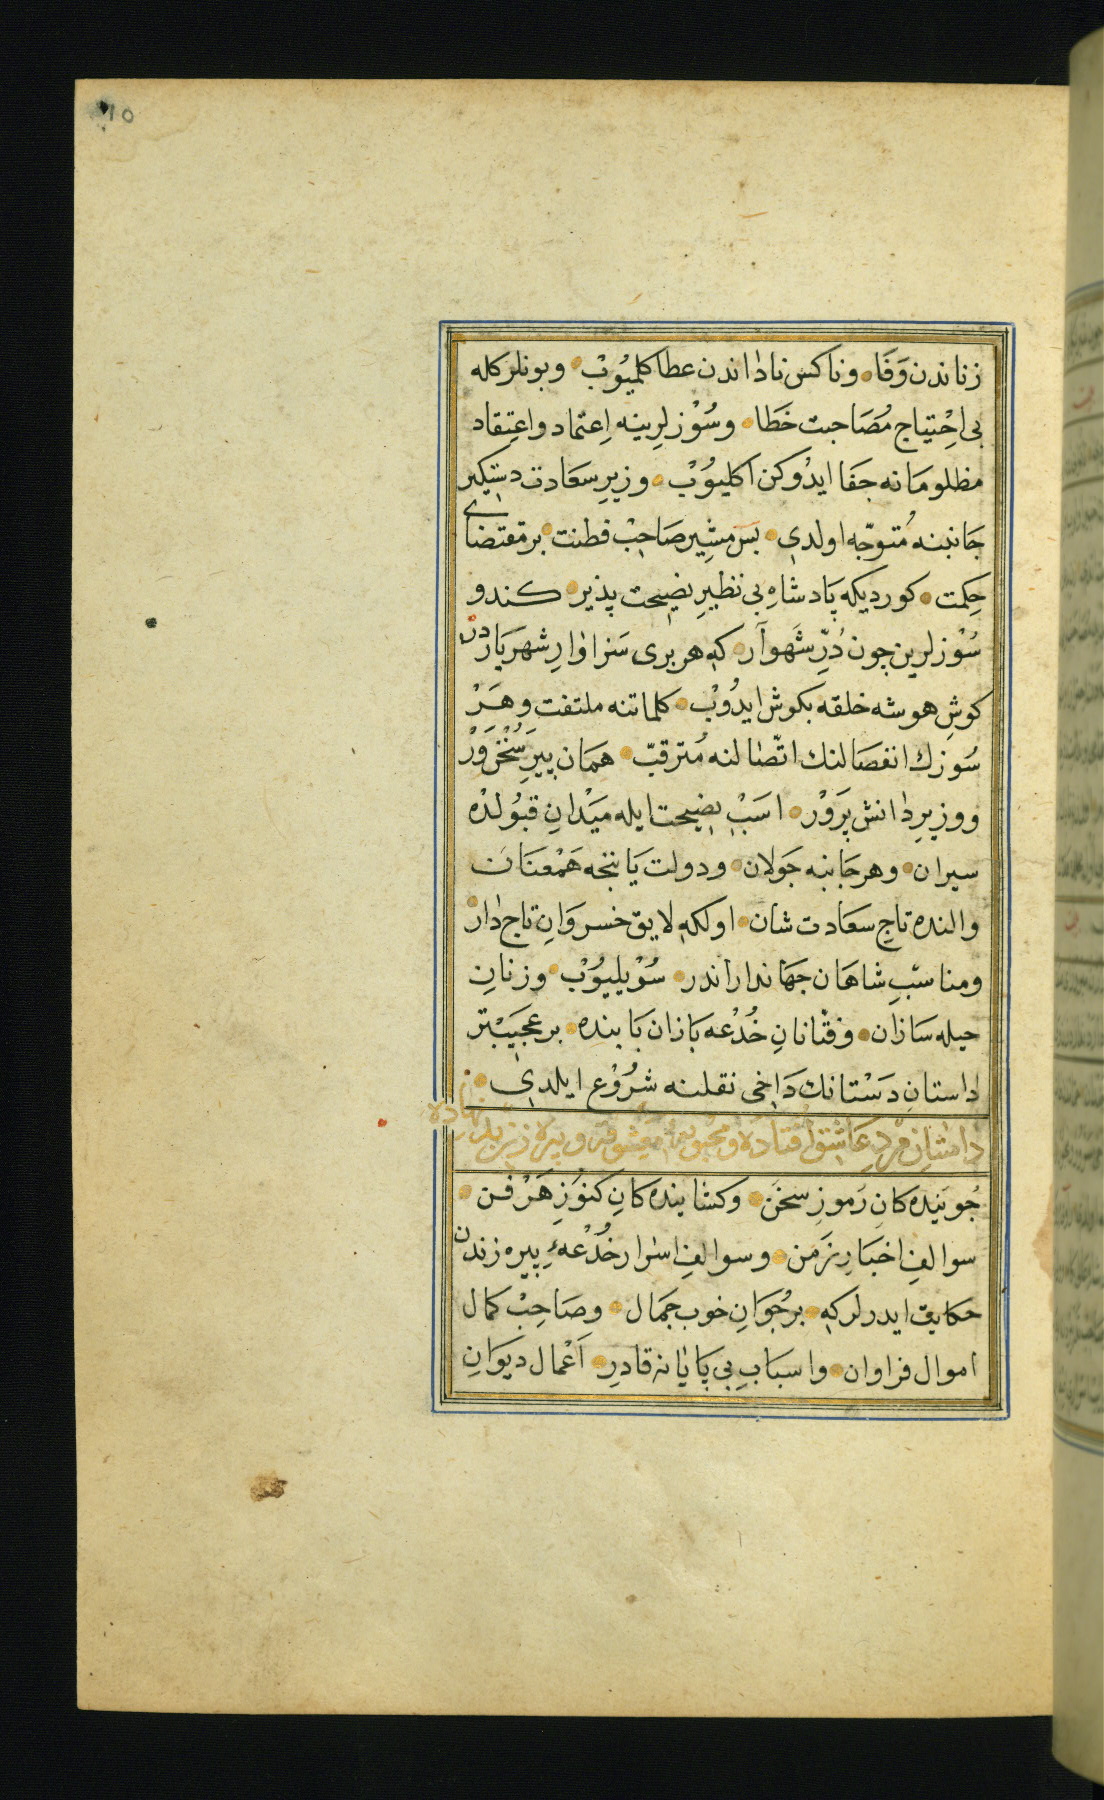 زناندن وَفَا وناكس ناداندن عطا كلميوُبْ وبونلركله
بى اِحْتِيَاج مُصَاحبت خَطَا وسُوْزلرِينه اِعتماد واعتِقاد
مظلومَانه جَفَا ايدُوكن اكليوُبْ وزيرِ سَعَادت دستكير
جَانبنه مُتوجّه اولدى پس مشِيرِ صَاحِبْ فطنت بر مقتضاى
حِكمت كورديكه پادشاهِ بى نظيرِ نصيحت پذير كندو
سُوْزلرين چون دُرِّ شَهوآر كه هر برى سَزاوارِ شهريَاردر
كوشِ هوشه حلقه بكوش ايدُوبْ كلماتنه ملتفت وهَرْ
سُوزك انفصَالنك اتّصالنه مُترقبّ همَان پيرِ سُخَنْوَرْ
ووزيرِ دانش پَرَوْر اسَبْ نصيحت ايله مَيْدانِ قبُولدْه
سيران وهر جَانبه جَولان ودولت يَاننجه هَمْعنَان
والنده تاجِ سعَادت شان اولكه لايق خسروَانِ تاجدار
ومناسبِ شاهَان جهَاندار اندر سُوْيليوُبْ وزنانِ
حيله سَازان وفتّانانِ خُدْعه بَازان بَابنده بر عجيَبْتر
داستانِ دَسْتانك دَاخى نقلنه شرُوْع ايلدى
داستان مرْدِ عَاشقِ اُفتاده و محبوبهٴ معشوقه و پيره زن
جُوينده كانِ رَموزِ سخَن وكشاينده كانِ كنوُزِ هَرْ فن
سوالفِ اخبَارِ زَمن وسوالفِ اسرار خُدْعهٴ پيره زندن
حكايت ايدرلركه بر جُوَانِ خوب جمَال وصَاحِبْ كمال
اموال فراوان واسبابِ بى پَايانه قادرِ اَعْمال ديوَانِ